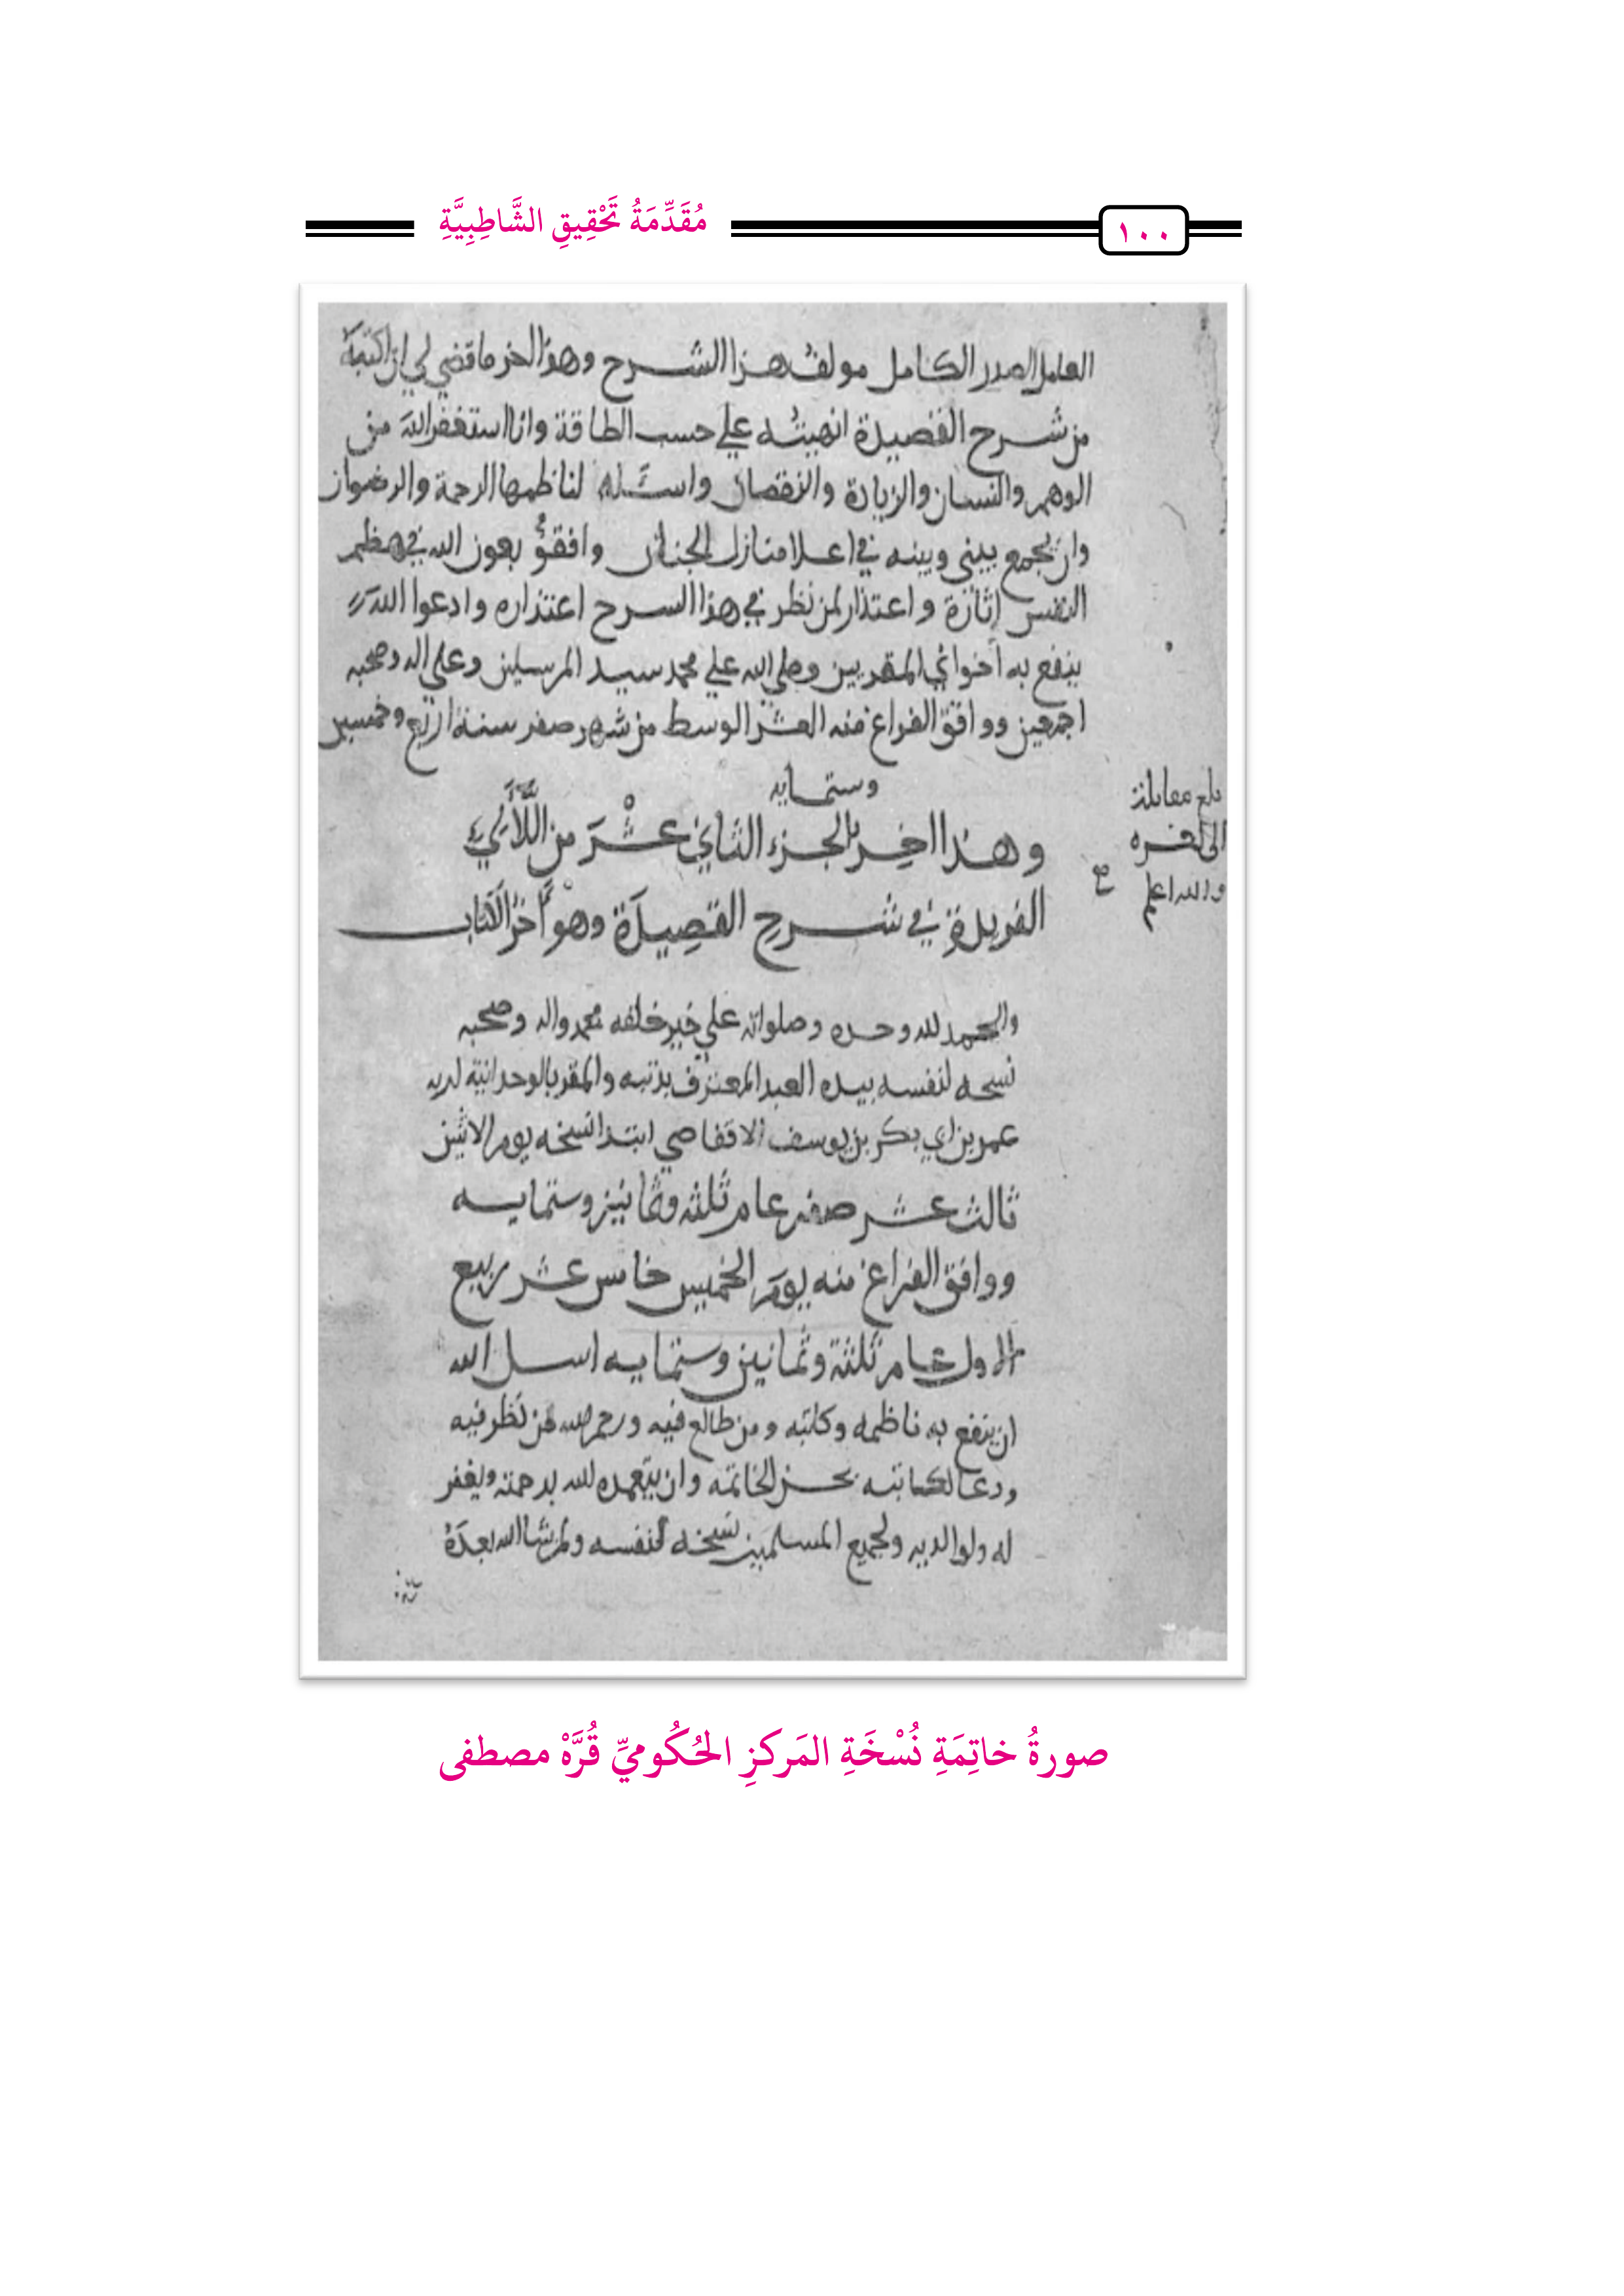 ١٠٠
مُقَدِّمَةُ تَحْقِيقِ الشَّاطِبِيَّةِ
العامل الصدر الكامل مولف هذا الشرح وهذا اخر ما قضي لي ان اكتبه
من شرح القصيدة انهيته علي حسب الطاقة وانا استغفر الله من
الوهم والنسيان والزيادة والنقصان واسئله لناظمها الرحمة والرضوان
وان يجمع بيني وبينه في اعلا منازل الجنان وافقو بعون الله في هظم
النفس اثاره واعتذار لمن نظر في هذا السرح اعتذاره وادعوا الله
ينفع به اخواني المقريين وصلي الله علي محمد سيد المرسلين وعلي اله وصحبه
اجمعين ووافق الفراغ منه العشر الوسط من شهر صفر سنة اربع وخمسين
وستمايه
وهذا اخر الجزء الثاني عشر من اللآلئ
الفريدة في شرح القصيدة وهو آخر الكتاب
بلغ مقابلة
الى اخره
والله اعلم
والحمد لله وحده وصلواته علي خير خلقه محمد واله وصحبه
نسخه لنفسه بيده العبد المعترف بذنبه والمقر بالوحدانية لربه
عمر بن ابي بكر بن يوسف الاقفاصي ابتدا نسخه يوم الاثنين
ثالث عشر صفر عام ثلثه وثمانين وستمايه
ووافق الفراغ منه يوم الخميس خامس عشر ربيع
الاول عام ثلثة وثمانين وستمايه اسل الله
ان ينفع به ناظمه وكاتبه ومن طالع فيه ورحم الله من نظر فيه
ودعا لكاتبه بحسن الخاتمه وان يتغمده الله برحمته ويغفر
له ولوالديه ولجميع المسلمين نسخه لنفسه ولمن شا الله بعده
صورةُ خاتِمَةِ نُسْخَةِ المَركزِ الحُكُوميِّ قُرَّهْ مصطفى